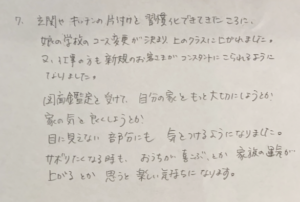 7. 玄関やキッチンの片付けと習慣化できてきたころに、
娘の学校のコース変更が決まり 上のクラスに上がれました。
又、仕事の方も新規のお客さまがコンスタントにこられるように
なりました。
鑑定を受けて、自分の家ともっと大切にしようとか
家の気と良くしようとか
目に見えない部分にも 気をつけるようになりました。
サボりたくなる時も、おうちが喜ぶ、とか 家族の運気が
上がるとか 思うと 楽しい気持ちになります。